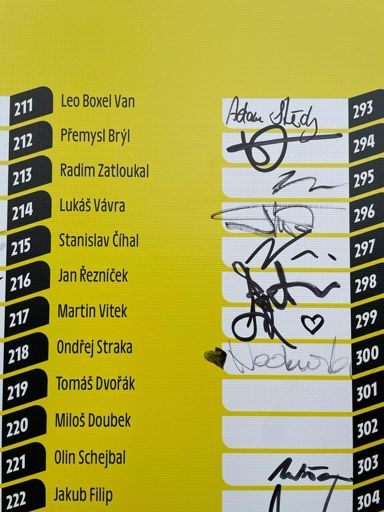 211 Leo Boxel Van 293
212 Přemysl Brýl 294
213 Radim Zatloukal 295
214 Lukáš Vávra 296
215 Stanislav Číhal 297
216 Jan Řezníček 298
217 Martin Vitek 299
218 Ondřej Straka 300
219 Tomáš Dvořák 301
220 Miloš Doubek 302
221 Olin Schejbal 303
222 Jakub Filip 304